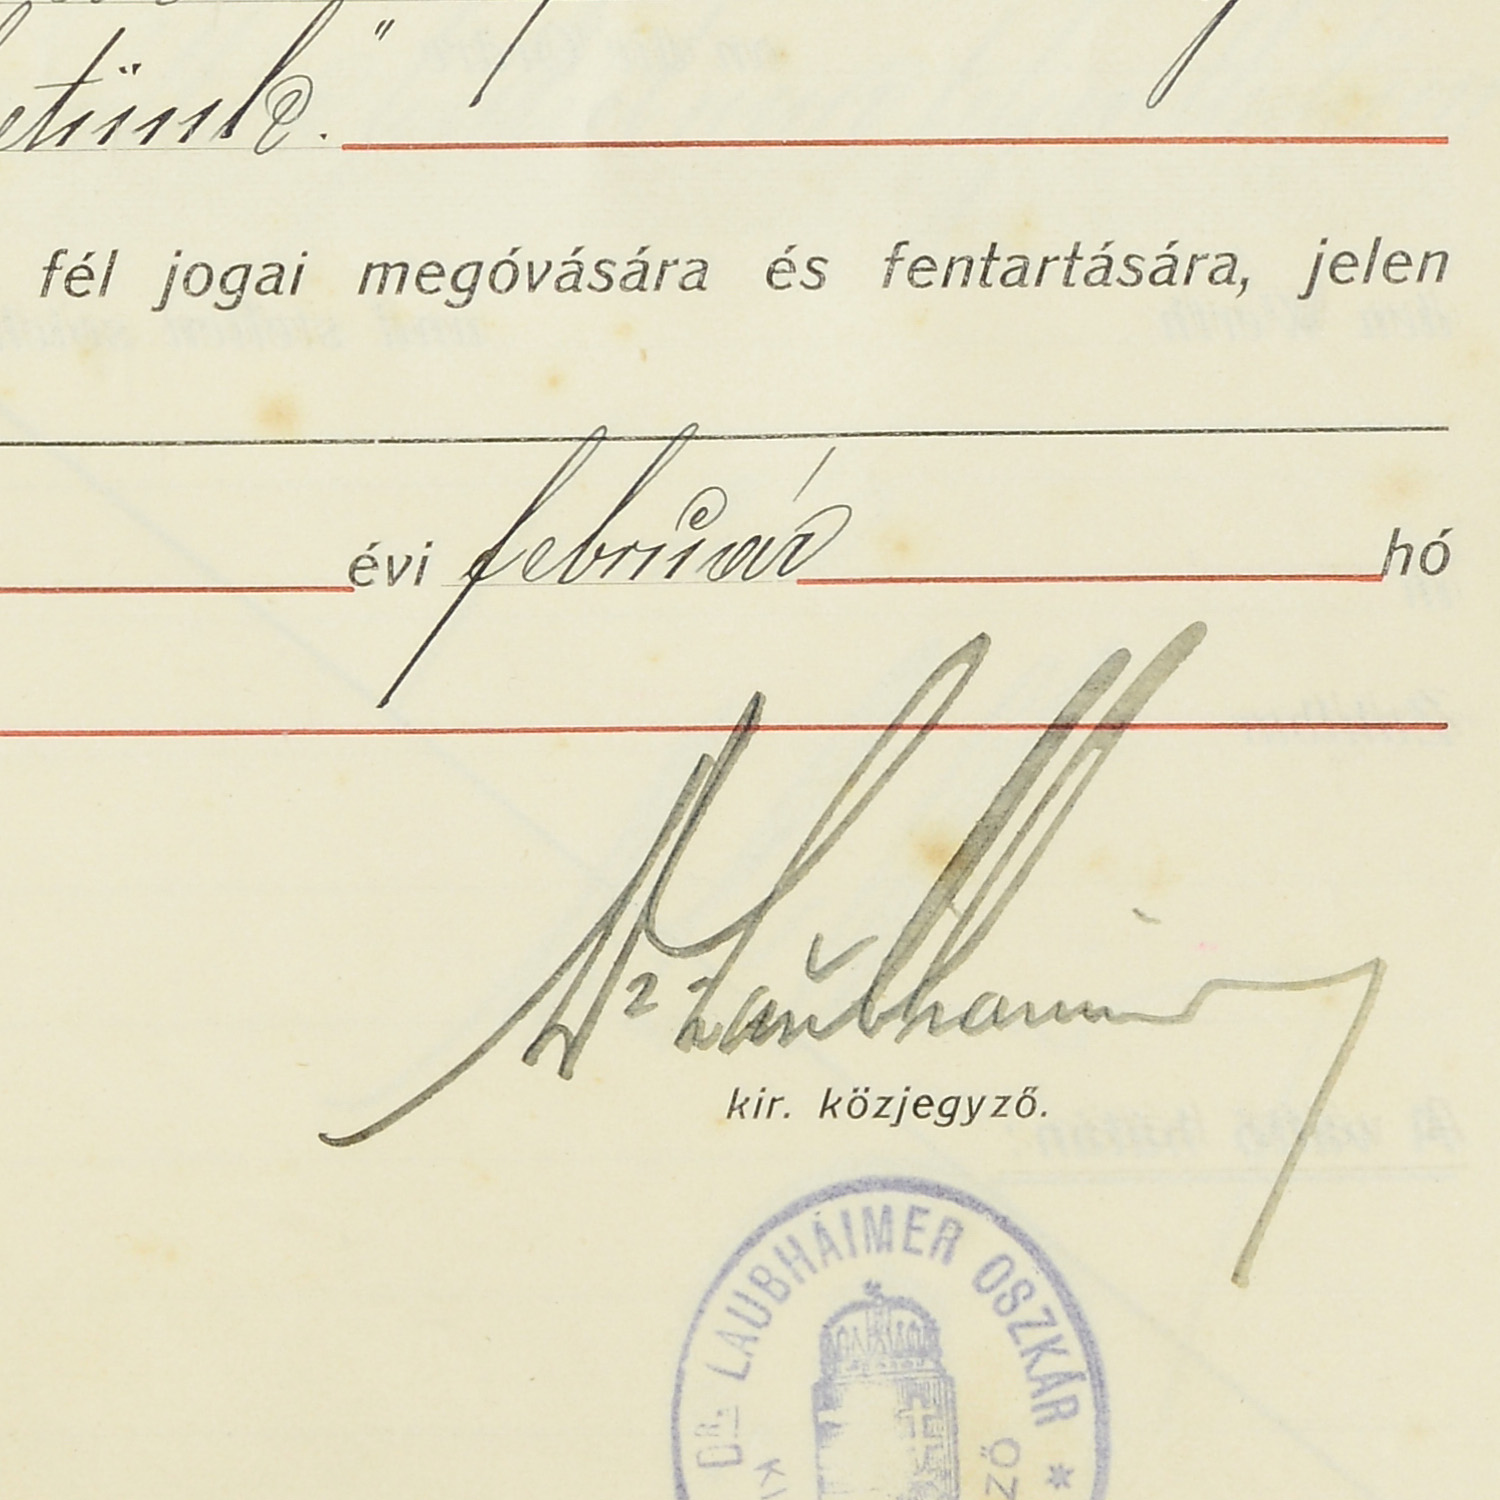 fél jogai megóvására és fentartására, jelen
évi február hó
Dr Laubhaimer
kir. közjegyző.
DR. LAUBHAIMER OSZKÁR *